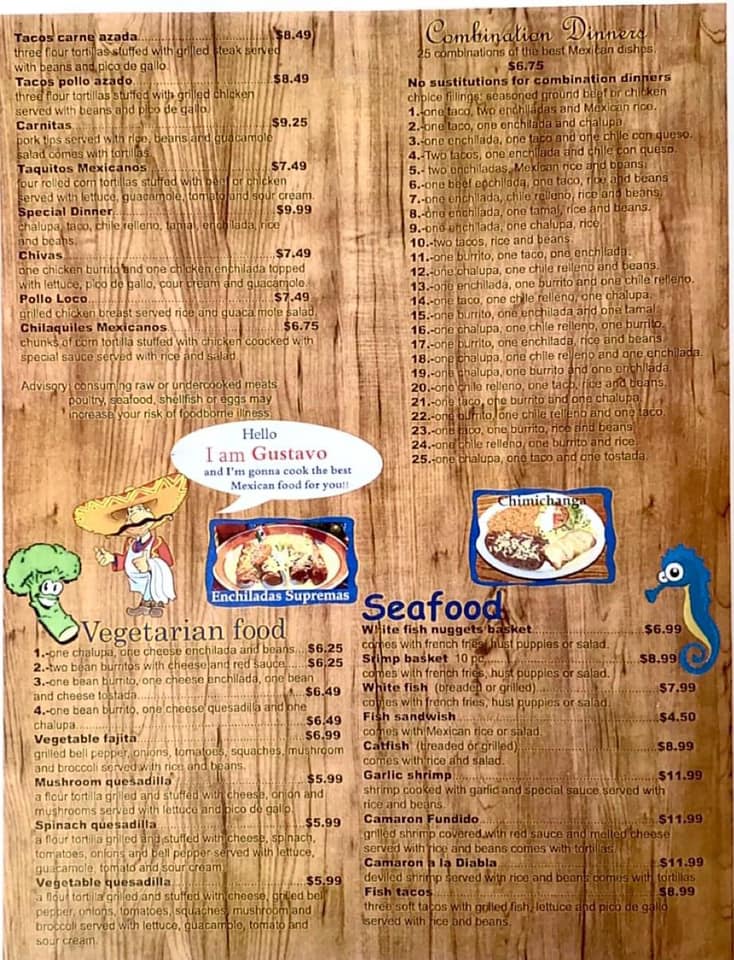 Tacos carne azada $8.49
three flour tortillas stuffed with grilled steak served
with beans and pico de gallo.
Tacos pollo azado $8.49
three flour tortillas stuffed with grilled chicken
served with beans and pico de gallo.
Carnitas $9.25
pork tips served with rice, beans and guacamole
salad comes with tortillas.
Taquitos Mexicanos $7.49
four rolled corn tortillas stuffed with beef or chicken
served with lettuce, guacamole, tomato and sour cream.
Special Dinner $9.99
chalupa, taco, chile relleno, tamal, enchilada, rice
and beans.
Chivas $7.49
one chicken burrito and one chicken enchilada topped
with lettuce, pico de gallo, cour cream and guacamole.
Pollo Loco $7.49
grilled chicken breast served rice and guaca mole salad.
Chilaquiles Mexicanos $6.75
chunks of corn tortilla stuffed with chicken coocked with
special sauce served with rice and salad.
Advisory: consuming raw or undercooked meats
poultry, seafood, shellfish or eggs may
increase your risk of foodborne illness.
Combination Dinners
25 combinations of the best Mexican dishes.
$6.75
No sustitutions for combination dinners
choice fillings: seasoned ground beef or chicken
1.-one taco, two enchiladas and Mexican rice.
2.-one taco, one enchilada and chalupa.
3.-one enchilada, one taco and one chile con queso.
4.-Two tacos, one enchilada and chile con queso.
5.- two enchiladas, Mexican rice and beans.
6.-one beef enchilada, one taco, rice and beans
7.-one enchilada, chile relleno, rice and beans.
8.-one enchilada, one tamal, rice and beans.
9.-one enchilada, one chalupa, rice.
10.-two tacos, rice and beans.
11.-one burrito, one taco, one enchilada.
12.-one chalupa, one chile relleno and beans.
13.-one enchilada, one burrito and one chile relleno.
14.-one taco, one chile relleno, one chalupa.
15.-one burrito, one enchilada and one tamal.
16.-one chalupa, one chile relleno, one burrito.
17.-one burrito, one enchilada, rice and beans
18.-one chalupa, one chile relleno and one enchilada.
19.-one chalupa, one burrito and one enchilada.
20.-one chile relleno, one taco, rice and beans.
21.-one taco, one burrito and one chalupa.
22.-one burrito, one chile relleno and one taco.
23.-one taco, one burrito, rice and beans
24.-one chile relleno, one burrito and rice.
25.-one chalupa, one taco and one tostada.
Hello
I am Gustavo
and I'm gonna cook the best
Mexican food for you!!
Enchiladas Supremas
Chimichanga
Vegetarian food
1.-one chalupa, one cheese enchilada and beans $6.25
2.-two bean burritos with cheese and red sauce $6.25
3.-one bean burrito, one cheese enchilada, one bean
and cheese tostada $6.49
4.-one bean burrito, one cheese quesadilla and one
chalupa $6.49
Vegetable fajita $6.99
grilled bell pepper, onions, tomatoes, squaches, mushroom
and broccoli served with rice and beans.
Mushroom quesadilla $5.99
a flour tortilla grilled and stuffed with cheese, onion and
mushrooms served with lettuce and pico de gallo.
Spinach quesadilla $5.99
a flour tortilla grilled and stuffed with cheese, spinach,
tomatoes, onions and bell pepper served with lettuce,
guacamole, tomato and sour cream.
Vegetable quesadilla $5.99
a flour tortilla grilled and stuffed with cheese, grilled bell
pepper, onions, tomatoes, squaches, mushroom and
broccoli served with lettuce, guacamole, tomato and
sour cream.
Seafood
White fish nuggets basket $6.99
comes with french fries, hust puppies or salad.
Srimp basket 10 pc $8.99
comes with french fries, hust puppies or salad.
White fish (breaded or grilled) $7.99
comes with french fries, hust puppies or salad.
Fish sandwish $4.50
comes with Mexican rice or salad.
Catfish (breaded or grilled) $8.99
comes with rice and salad.
Garlic shrimp $11.99
shrimp cooked with garlic and special sauce served with
rice and beans.
Camaron Fundido $11.99
grilled shrimp covered with red sauce and melted cheese
served with rice and beans comes with tortillas.
Camaron a la Diabla $11.99
deviled shrimp served with rice and beans comes with tortillas
Fish tacos $8.99
three soft tacos with grilled fish, lettuce and pico de gallo
served with rice and beans.